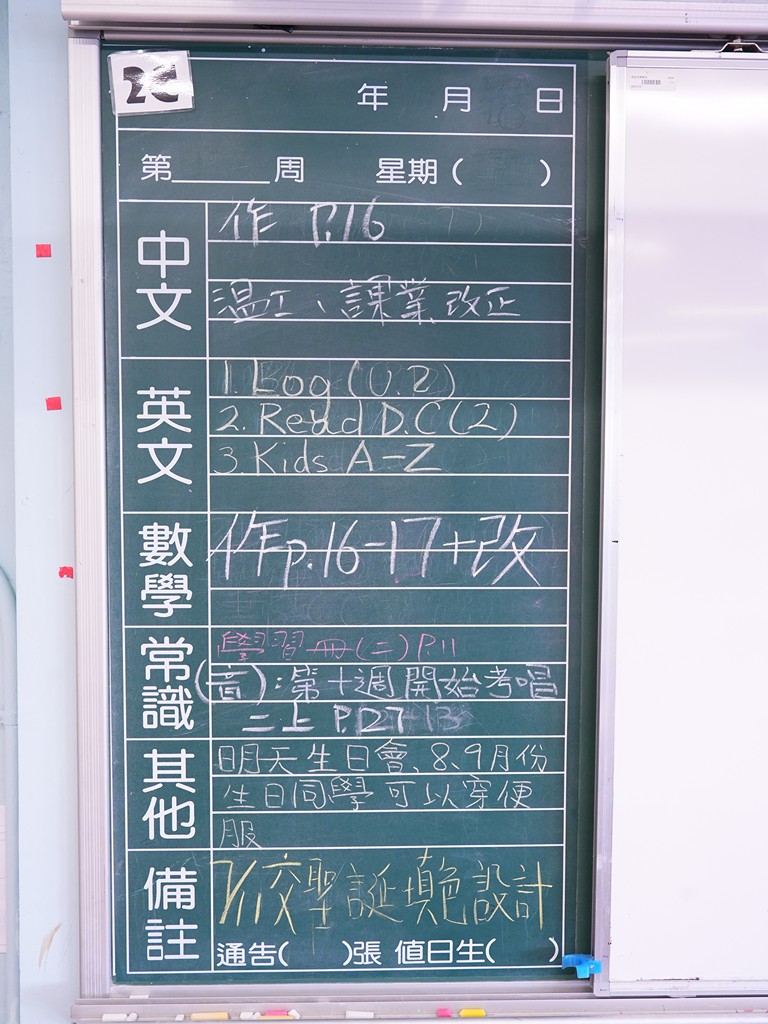 2C
年 月 日
第______周 星期( )
中文
作 P.16
温工、課業改正
英文
1. Log (U.2)
2. Read D.C (2)
3. Kids A-Z
數學
作p.16-17+改
常識
學習冊(二)P.11
(音):第十週開始考唱
二上 P.27
其他
明天生日會,8、9月份
生日同學可以穿便
服
備註
7/11交聖誕填色設計
通告( )張 值日生( )